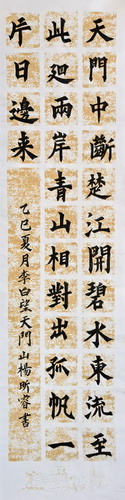 天門中斷楚江開碧水東流至
此迴兩岸青山相對出孤帆一
片日邊来
乙巳夏月李白望天門山楊昕睿書